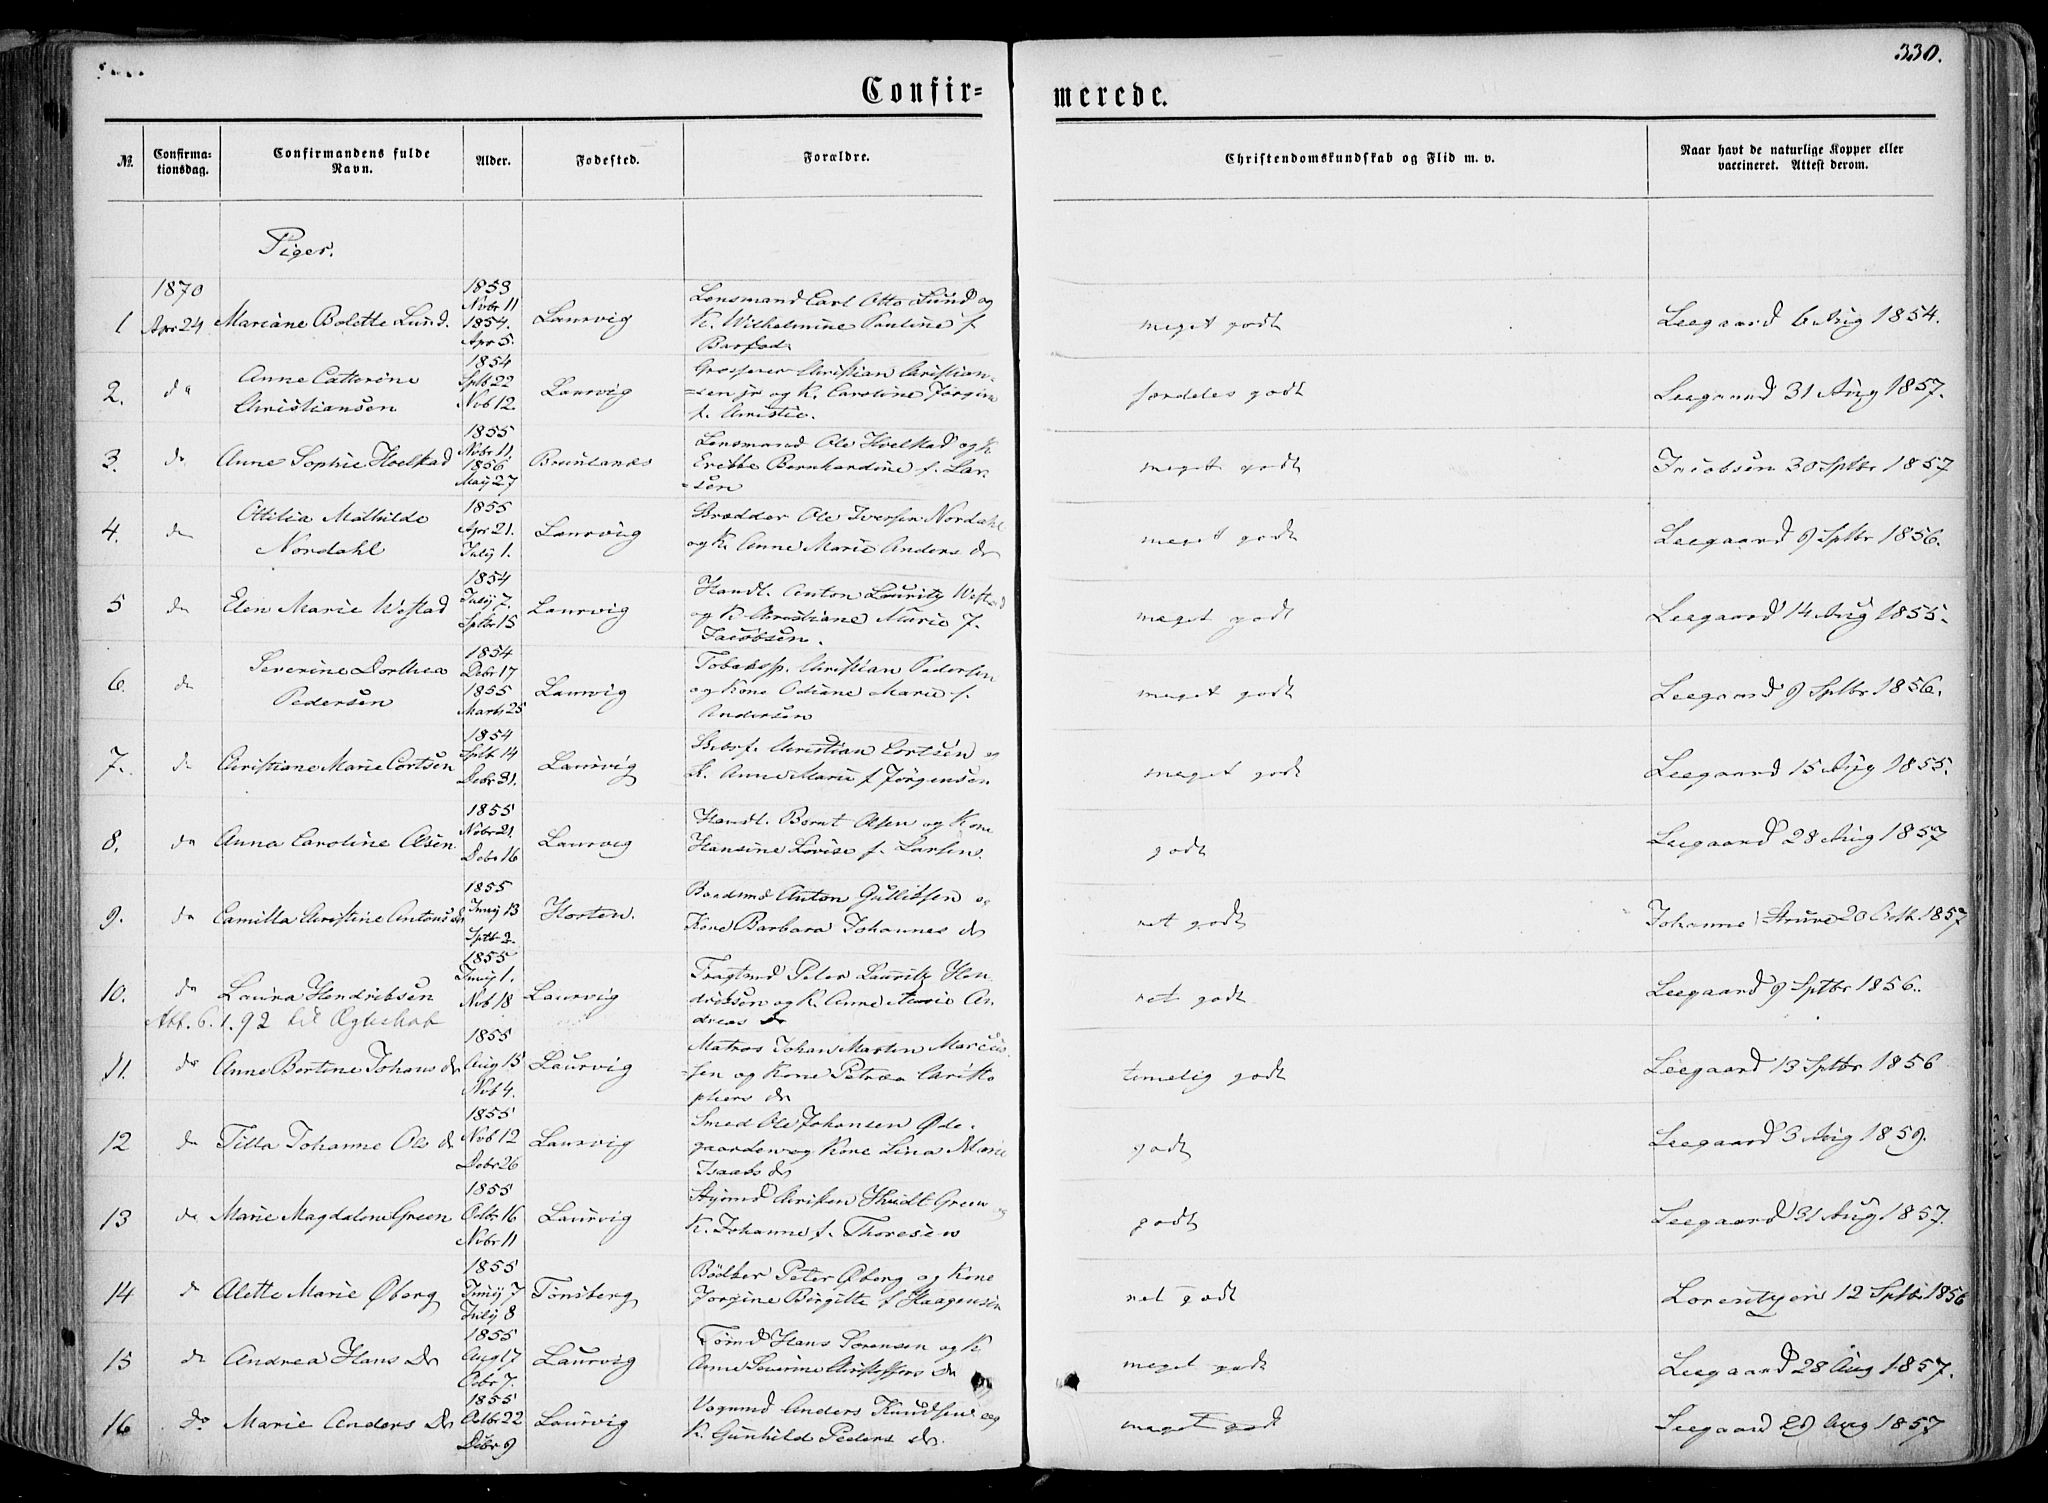 330.
Confir=
merede.
№.
Confirma-
tionsdag.
Confirmandens fulde
Navn.
Alder.
Fødested.
Forældre.
Christendomskundskab og Flid m. v.
Naar havt de naturlige Kopper eller
vaccineret. Attest derom.
Piger.
1870
1 Apr 24 Mariane Bolette Lund.
1853
Nvbr 11
1854.
Apr 5.
Laurvig
Lensmand Carl Otto Lund og
K. Wilhelmine Pauline f.
meget godt
Leegaard 6 Aug 1854.
2. do Anne Cathrine
Christiansen
1854
Sptb 22
Nvb 12.
Laurvig
Christian Christian-
=sen jr og K. Caroline Jørgine
f. Christie.
særdeles godt
Leegaard 31 Aug 1857.
3. do Anne Sophie Hoelstad
1855
Nvbr 11.
1856
Maij 27
Brunlanes
Lensmand Ole Hoelstad og K.
Bernhardine f. Lar-
=sen
meget godt
Jacobsen 30 Sptbr 1857
4. do Ottilia Mathilde
Nordahl
1855
Apr 21.
Julij 1.
Laurvig
Ole Iversen Nordahl
og K. Anne Marie Anders dr
meget godt
Leegaard 9 Sptbr 1856.
5 do Elen Marie Westad
1854
Julij 7.
Sptbr 15
Laurvig
Handl. Anton Lauritz Westad
og K. Christiane Marie f.
Jacobsen.
meget godt
Leegaard 14 Aug 1855.
6. do Severine Dorthea
Pedersen
1854
Debr 17
1855
Marts 25
Laurvig
Tobaksp. Christian Pedersen
og Kone Odiane Marie f.
Andersen
meget godt
Leegaard 9 Sptbr 1856.
7. do Christiane Marie Cortsen
1854
Sptb 14
Debr 31.
Laurvig
Christian Cortsen og
K. Anne Marie f Jørgensen
meget godt
Leegaard 15 Aug 1855.
8. do Anna Caroline Olsen
1855
Nvbr 21.
Debr 16
Laurvig
Handl. Bernt Olsen og Kone
Hansine Lovise f. Larsen.
godt
Leegaard 28 Aug 1857
9. do Camilla Christine Antons dr
1855
Junij 13
Sptb 2.
Horten.
Anton Gullitsen og
Kone Barbara Johannes dr
net godt
Johanne Struve 20 Octb 1857
10. do Laura Hendriksen
1855
Junij 1.
Nvb 18
Laurvig
Fragtmd Peter Lauritz Hen
driksen og K. Anne Marie An
dreas dr
net godt
Leegaard 9 Sptbr 1856.
Att. 6. 1. 92 til Ægteskab
11. do Anne Bertine Johans dr
1855
Aug 15
Nvb 4.
Laurvig
Matros Johan Martin Marcus
=sen og Kone Petrea Christo
phers dr
temelig godt
Leegaard 13 Sptbr 1856
12 do Tilla Johanne Ols dr
1855
Nvb 12
Debr 26
Laurvig
Smed Ole Johansen Øde-
gaarden og Kone Lina Marie
Isaaks dr
godt
Leegaard 3 Aug 1859.
13 do Marie Magdalene Green
1855
Octbr 16
Nvbr 11
Laurvig
Hvidt Green og
K. Johanne f. Thoresen
godt
Leegaard 31 Aug 1857.
14 do Alette Marie Øberg
1855
Junij 7
Julij 8
Tønsberg
Bødker Peter Øberg og Kone
Jørgine Birgitte f Haagensen
net godt
Lorentzen 12 Sptbr 1856
15 do Andrea Hans Dr
1855
Aug 17
Octbr 7.
Laurvig
Tømd Hans Sørensen og K.
Anne Severine Christoffers dr
meget godt
Leegaard 28 Aug 1857.
16 do Marie Anders Dr
1855
Octbr 22
Debr 9
Laurvig
Vognmd Anders Knudsen og
K. Gunhild Peders dr.
meget godt
Leegaard 29 Aug 1857